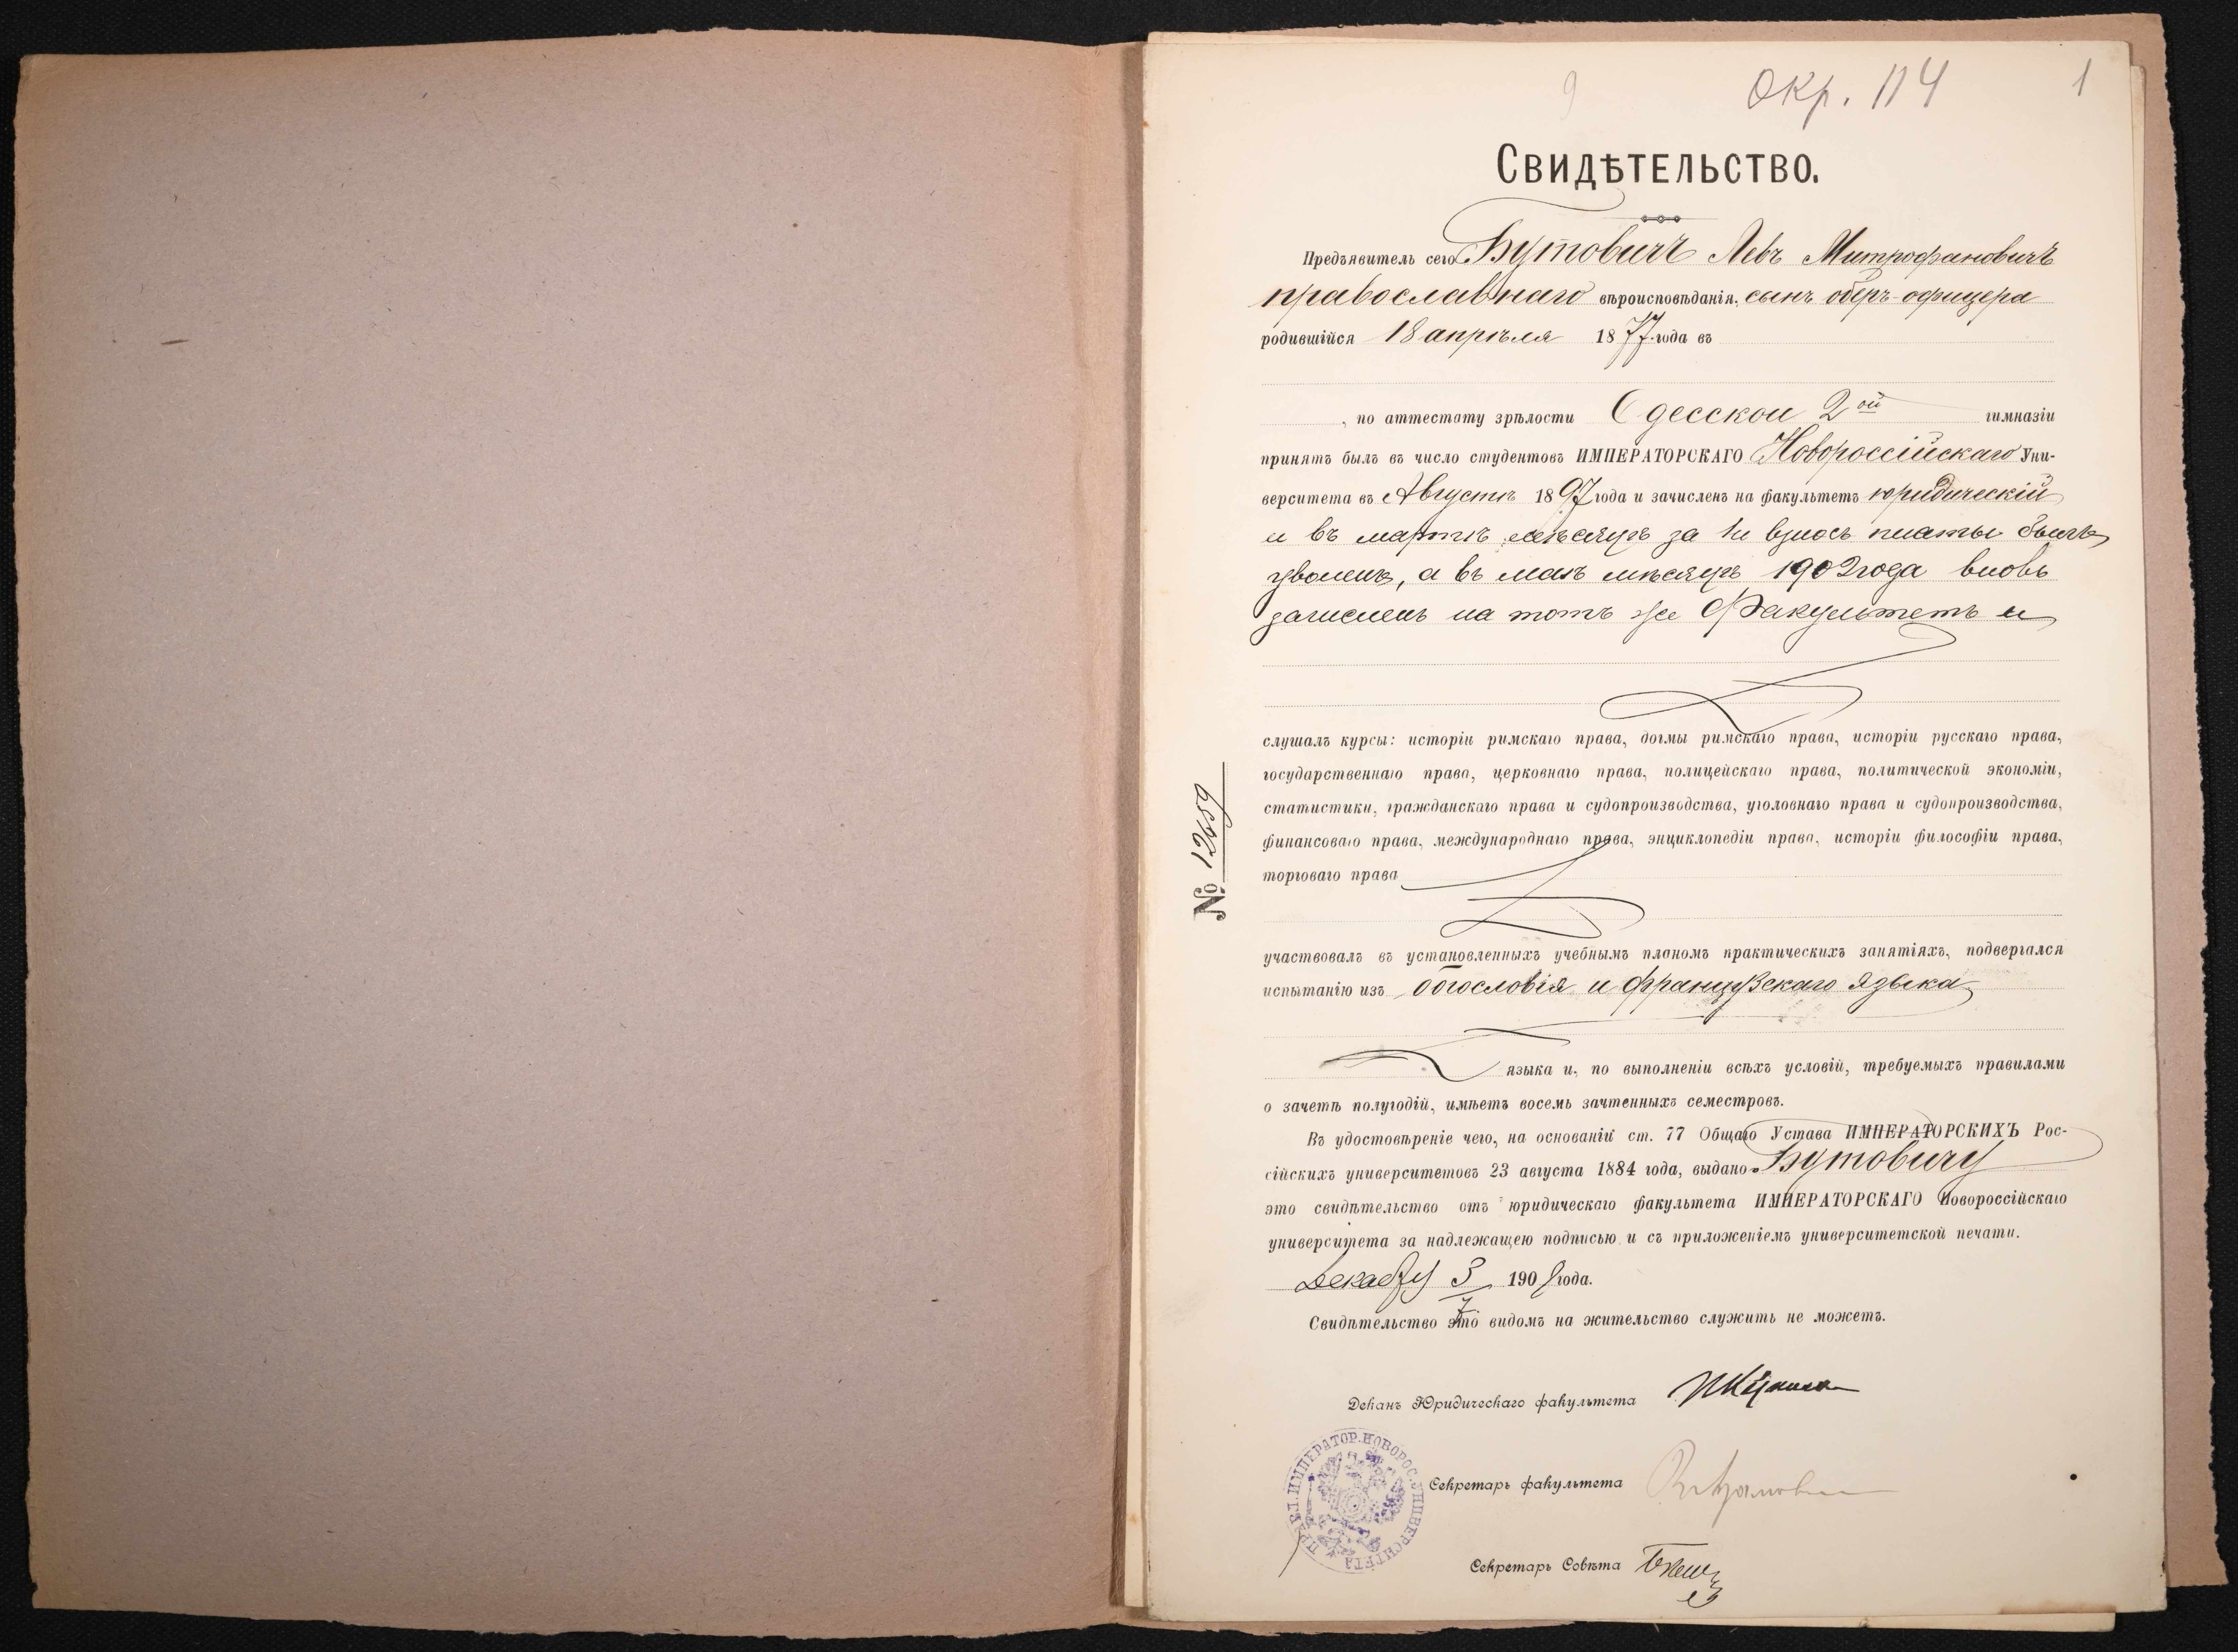 9 Окр. 114 1
СВИДѢТЕЛЬСТВО.
Предъявитель сего Бутовичъ Левъ Митрофановичъ
православнаго вѣроисповѣданія, сынъ оберъ-офицера
родившійся 18 апрѣля 1877 года въ
, по аттестату зрѣлости Одесской 2ой гимназіи
принятъ былъ въ число студентовъ ИМПЕРАТОРСКАГО Новороссійскаго Уни-
верситета въ Августѣ 1897 года и зачисленъ на факультетъ юридическій
и въ мартѣ мѣсяцѣ за не взносъ платы былъ
уволенъ, а въ маѣ мѣсяцѣ 1902 года вновь
зачисленъ на тотъ же факультетъ и
слушалъ курсы: исторіи римскаго права, догмы римскаго права, исторіи русскаго права,
государственнаго права, церковнаго права, полицейскаго права, политической экономіи,
статистики, гражданскаго права и судопроизводства, уголовнаго права и судопроизводства,
финансоваго права, международнаго права, энциклопедіи права, исторіи философіи права,
торговаго права
№
участвовалъ въ установленныхъ учебнымъ планомъ практическихъ занятіяхъ, подвергался
испытанію изъ богословія и французскаго языка
языка и, по выполненіи всѣхъ условій, требуемыхъ правилами
о зачетѣ полугодій, имѣетъ восемь зачтенныхъ семестровъ.
Въ удостовѣреніе чего, на основаніи ст. 77 Общаго Устава ИМПЕРАТОРСКИХЪ Рос-
сійскихъ университетовъ 23 августа 1884 года, выдано Бутовичу
это свидѣтельство отъ юридическаго факультета ИМПЕРАТОРСКАГО Новороссійскаго
университета за надлежащею подписью и съ приложеніемъ университетской печати.
Декабря 3 190 года.
Свидѣтельство это видомъ на жительство служить не можетъ.
Деканъ Юридическаго факультета
ПРАВЛ. ИМПЕРАТОР. НОВОРОС. УНИВЕРСИТЕТА
Секретарь факультета
Секретарь Совѣта